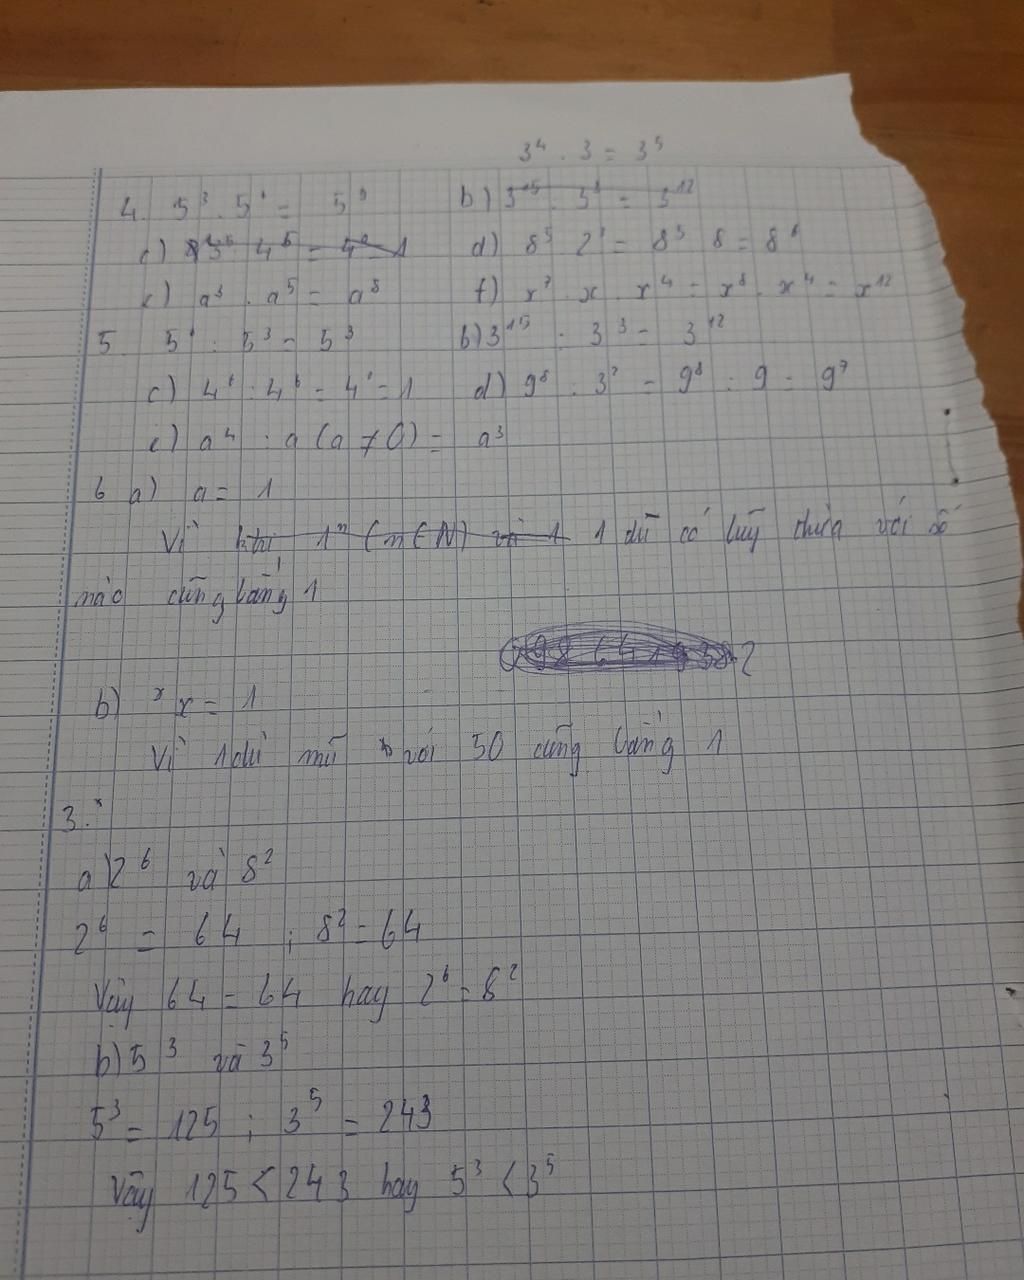 3⁴ . 3 = 3⁵
4. 5³ . 5⁶ = 5⁹ b) 3¹⁵ : 3³ = 3¹²
c) 4⁶ = 4⁰ = 1 d) 8⁵ 2³ = 8⁵ 8 = 8⁶
e) a³ . a⁵ = a⁸ f) x⁷ . x . x⁴ = x⁸ . x⁴ = x¹²
5. 5⁶ : 5³ = 5³ b) 3¹⁵ : 3³ = 3¹²
c) 4⁶ : 4⁶ = 4⁰ = 1 d) 9⁸ : 3² = 9⁸ : 9 = 9⁷
e) a⁴ : a (a ≠ 0) = a³
6 a) a = 1
Vì 1ⁿ (n ∈ N) 1 dù có luỹ thừa với số
nào cũng bằng 1
b) x = 1
Vì 1 dù mũ với 50 cũng bằng 1
3.
a) 2⁶ và 8²
2⁶ = 64 ; 8² = 64
Vậy 64 = 64 hay 2⁶ = 8²
b) 5³ và 3⁵
5³ = 125 ; 3⁵ = 243
Vậy 125 < 243 hay 5³ < 3⁵